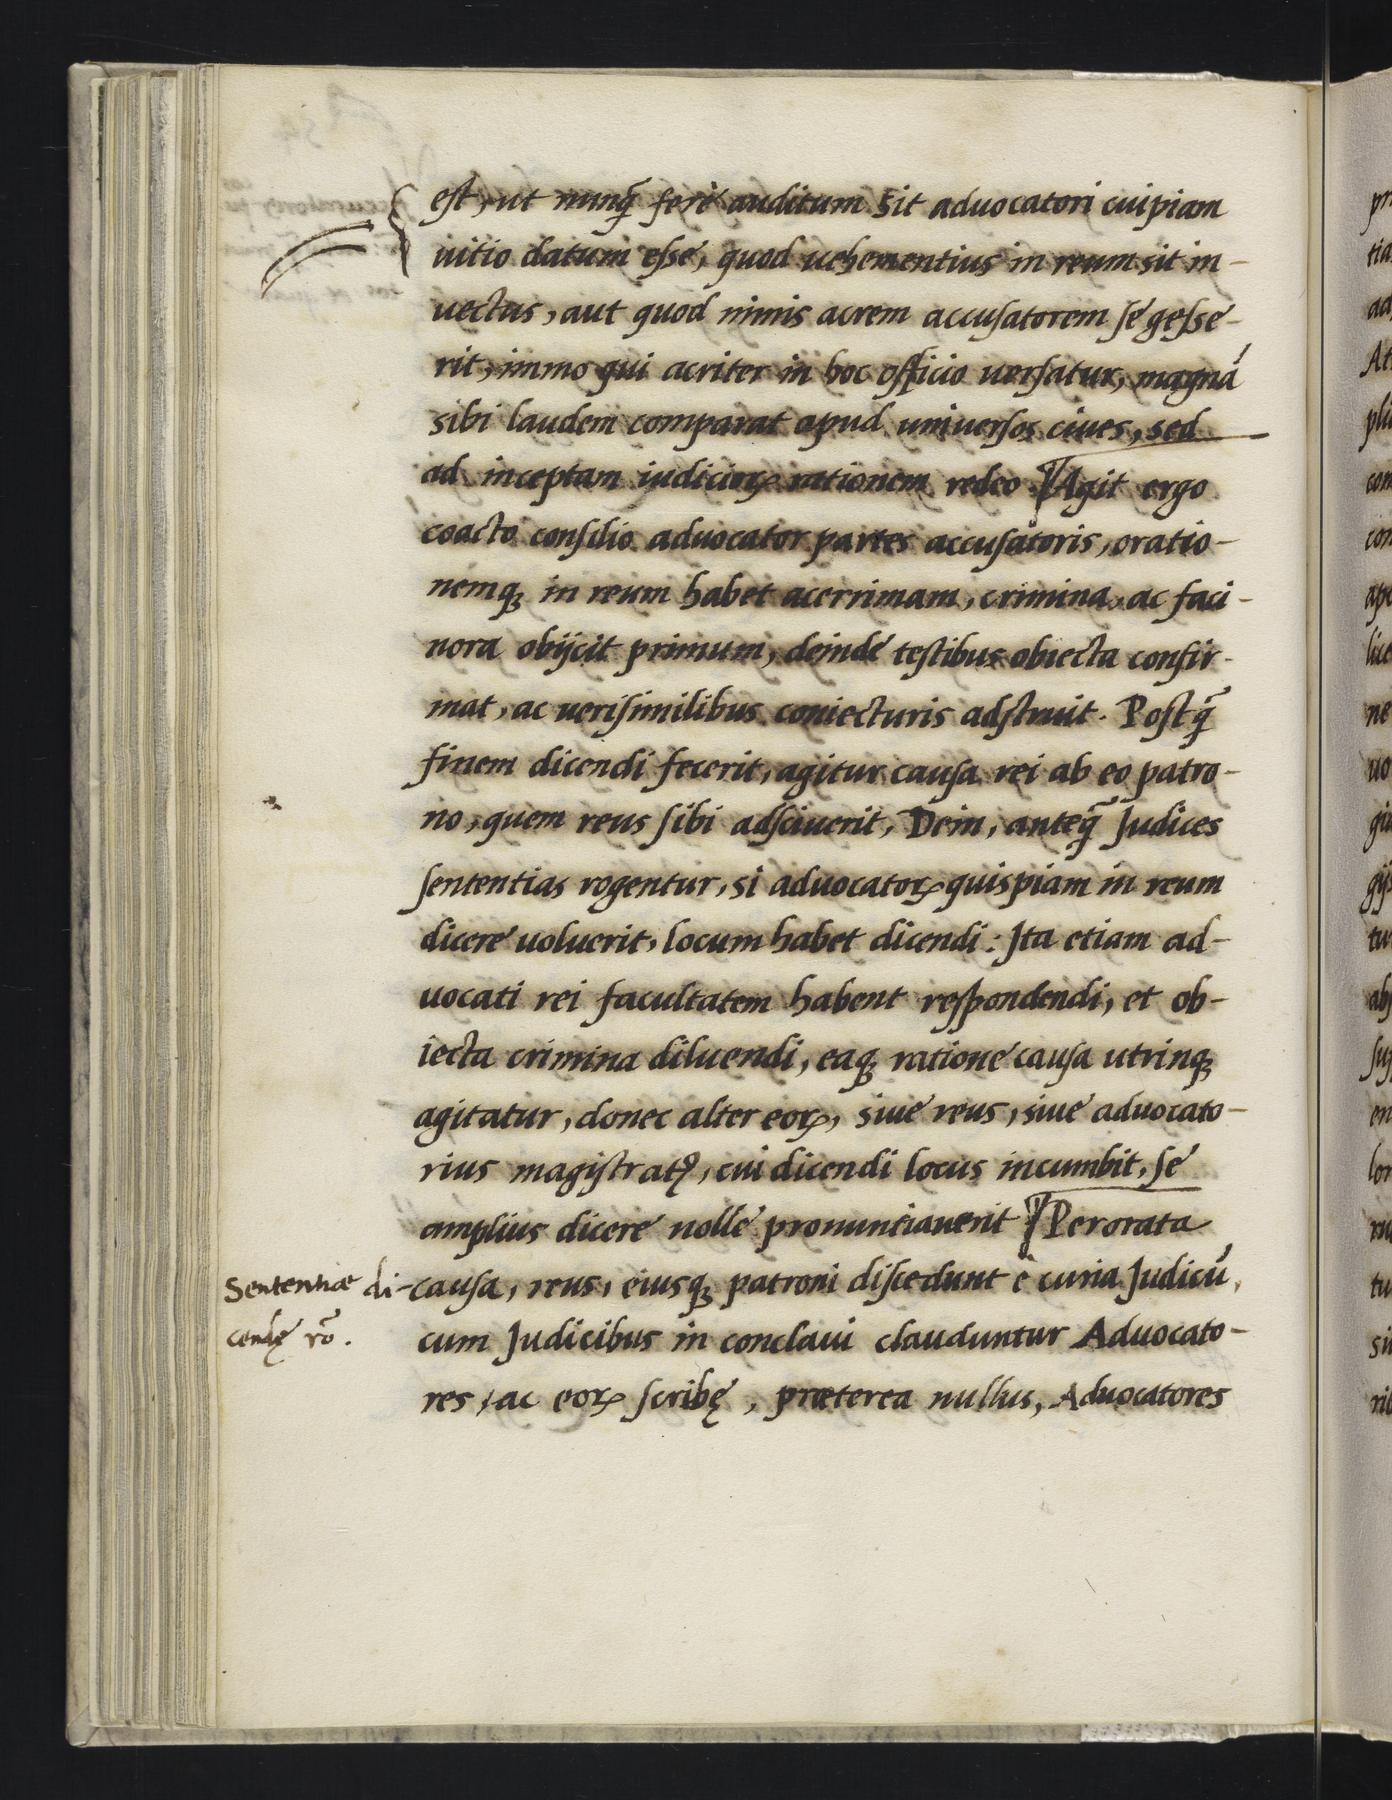 est, ut nunq̃ ferè auditum sit aduocatori cuipiam
uitio datum esse, quod uehementius in reum sit in-
uectus, aut quod nimis acrem accusatorem se gesse-
rit, immo qui acriter in hoc officio uersatur, magnã
sibi laudem comparat apud uniuersos ciues, sed
ad inceptam iudicioꝝ rationem redeo. ¶ Agit ergo
coacto consilio aduocator partes accusatoris, oratio-
nemq; in reum habet acerrimam, crimina, ac faci-
nora obijcit primum, deinde testibus obiecta confir-
mat, ac uerisimilibus coniecturis adstruit. Postq̃
finem dicendi fecerit, agitur causa rei ab eo patro-
no, quem reus sibi adsciuerit, Dein, anteq̃ Judices
sententias rogentur, si aduocatoꝝ quispiam in reum
dicere uoluerit, locum habet dicendi: Ita etiam ad-
uocati rei facultatem habent respondendi, et ob-
iecta crimina diluendi, eaq; ratione causa utrinq;
agitatur, donec alter eoꝝ, siue reus, siue aduocato-
rius magistratꝰ, cui dicendi locus incumbit, se
amplius dicere nolle pronuntiauerit ¶ Perorata
Sententiæ di-
cendę rõ.
causa, reus, eiusq; patroni discedunt è curia Judicũ,
cum Judicibus in conclaui clauduntur Aduocato-
res, ac eoꝝ scribę, præterea nullus, Aduocatores